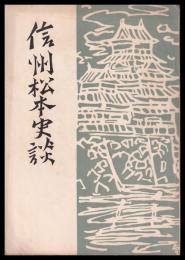 信州松本史談